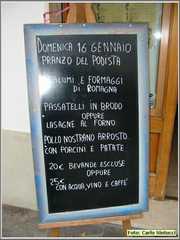 DOMENICA 16 GENNAIO
PRANZO DEL PODISTA
SALUMI E FORMAGGI
DI ROMAGNA
PASSATELLI IN BRODO
OPPURE
LASAGNE AL FORNO
POLLO NOSTRANO ARROSTO
CON PORCINI E PATATE
20€ BEVANDE ESCLUSE
OPPURE
25€ CON ACQUA, VINO E CAFFE'
Foto: Carlo Matucci